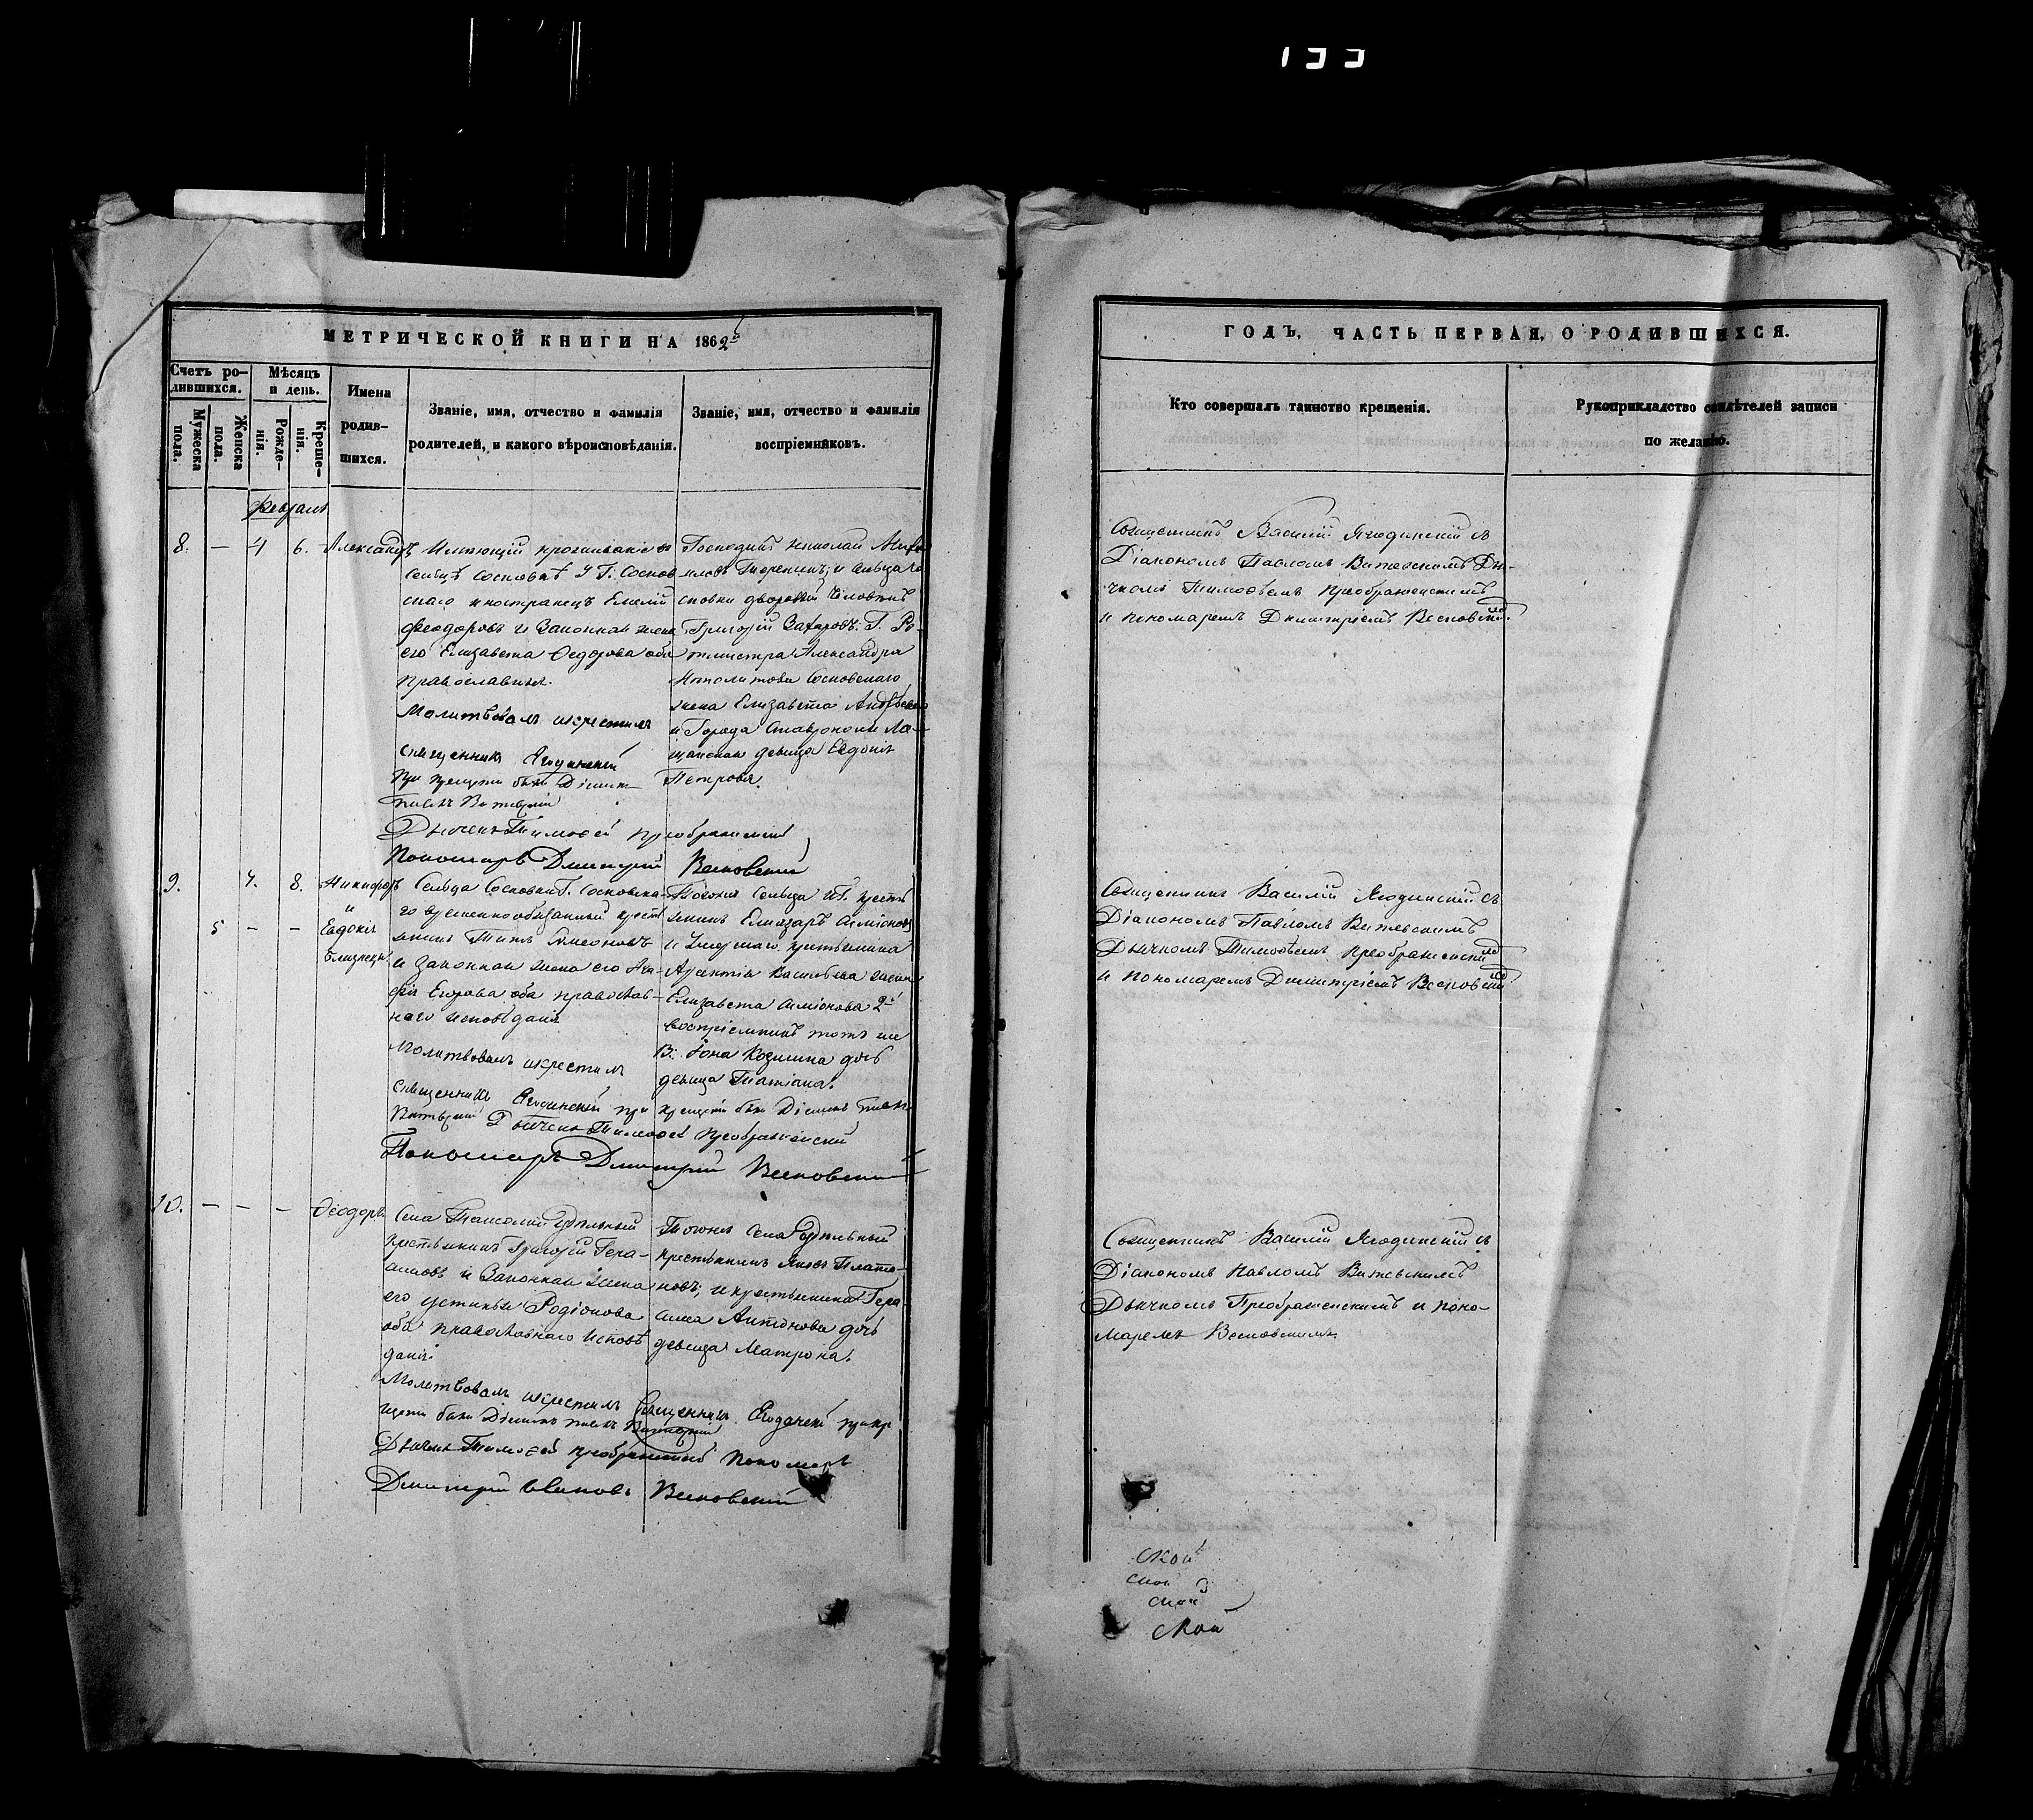 133
МЕТРИЧЕСКОЙ КНИГИ НА 1862й
Счетъ ро-
дившихся.
Мужеска
пола.
Женска
пола.
Мѣсяцъ
и день.
Рожде-
нія.
Креще-
нія.
Имена
родив-
шихся.
Званіе, имя, отчество и фамилія
родителей, и какого вѣроисповѣданія.
Званіе, имя, отчество и фамилія
воспріемниковъ.
Февраль
8. — 4 6.
Александръ
Имѣющій проживаніе въ
Сельцѣ Сосновкѣ у Г. Соснов
скаго иностранецъ Емелій
Феодоровъ и Законная жена
его Елизавета Федорова оба
православныя.
Молитвовалъ и крестилъ
священникъ Ягодинскій
при крещеніи были Діаконъ
Павелъ
Дьячекъ Тимофей Преображенскій
Пономарь Дмитрій Весновскій
Господинъ Николай
и сельца Со
сновки дворовый человѣкъ
Григорій Захаровъ. Г. Ро-
тмистра Александра
Ипполитова Сосновскаго
жена Елизавета Андреевна
и Города Ставрополя
девица Евдокія
Петрова.
9. 7. 8.
5 — —
Никифоръ
и
Евдокія
близнецы
Сельца Сосновки Г. Сосновска-
го временнообязанный крест
янинъ Титъ Симеоновъ
и законная жена его Ага-
фія Егорова оба православ-
наго исповѣданія
Молитвовалъ и крестилъ
священникъ Ягодинскій при крещеніи были Діаконъ Павелъ
Дьячекъ Тимофей Преображенскій
Пономарь Дмитрій Весновскій
Тогожъ Сельца и Г. крестъ
янинъ Елиазаръ Симіоновъ
и умершаго крестьянина
Арсентія Васильева жена
Елизавета Симіонова 2й
воспріемникъ тотъ же
В: Іона Козмина дочь
девица Татіана.
10. — — —
Ѳеодоръ
Села Удѣльный
крестьянинъ Григорій Гера-
симовъ и Законная жена
его Устинья Родіонова
оба православнаго исповѣ
данія.
Молитвовалъ и крестилъ Священникъ Ягодинскій при кре
щеніи были Діаконъ Павелъ
Дьячекъ Тимофей Преображенскій Пономарь
Дмитрій Весновскій
Тогожъ Села Удѣльный
крестьянинъ Яковъ Плато-
новъ, и крестьянина Гера-
сима Антонова дочь
девица Матрона.
ГОДЪ, ЧАСТЬ ПЕРВАЯ, О РОДИВШИХСЯ.
Кто совершалъ таинство крещенія.
Рукоприкладство свидѣтелей записи
по желанію.
Священникъ Василій Ягодинскій съ
Діакономъ Павломъ Витевскимъ Дья-
чкомъ Тимоѳеемъ Преображенскимъ
и пономаремъ Димитріемъ Весновскимъ.
Священникъ Василій Ягодинскій съ
Діакономъ Павломъ Витевскимъ
Дьячкомъ Тимоѳеемъ Преображенскимъ
и Пономаремъ Димитріемъ Весновскимъ
Священникъ Василій Ягодинскій съ
Діакономъ Павломъ Витевскимъ
Дьячкомъ Преображенскимъ и поно-
маремъ Весновскимъ.
ской
ской
ской
ской